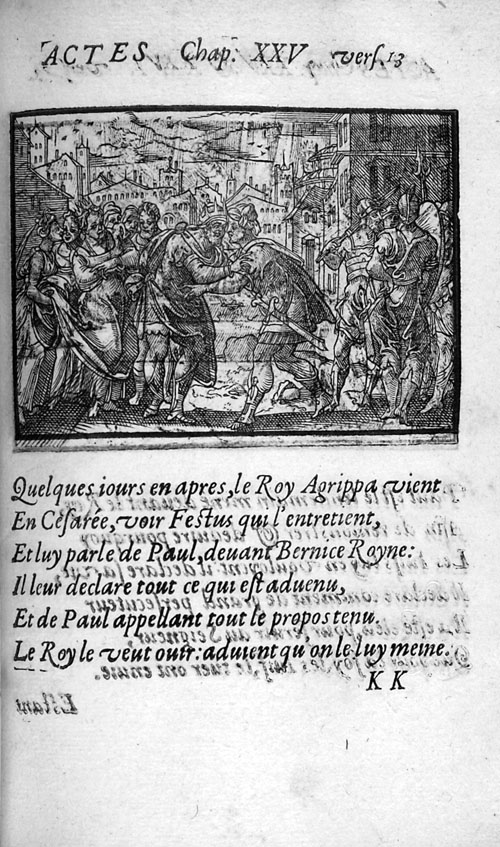 ACTES Chap. XXV vers. 13
Quelques iours en apres, le Roy Agrippa vient
En Césarée, voir Festus qui l'entretient,
Et luy parle de Paul, deuant Bernice Royne:
Il leur declare tout ce qui est aduenu,
Et de Paul appellant tout le propos tenu.
Le Roy le veut ouir: aduient qu'on le luy meine.
K K